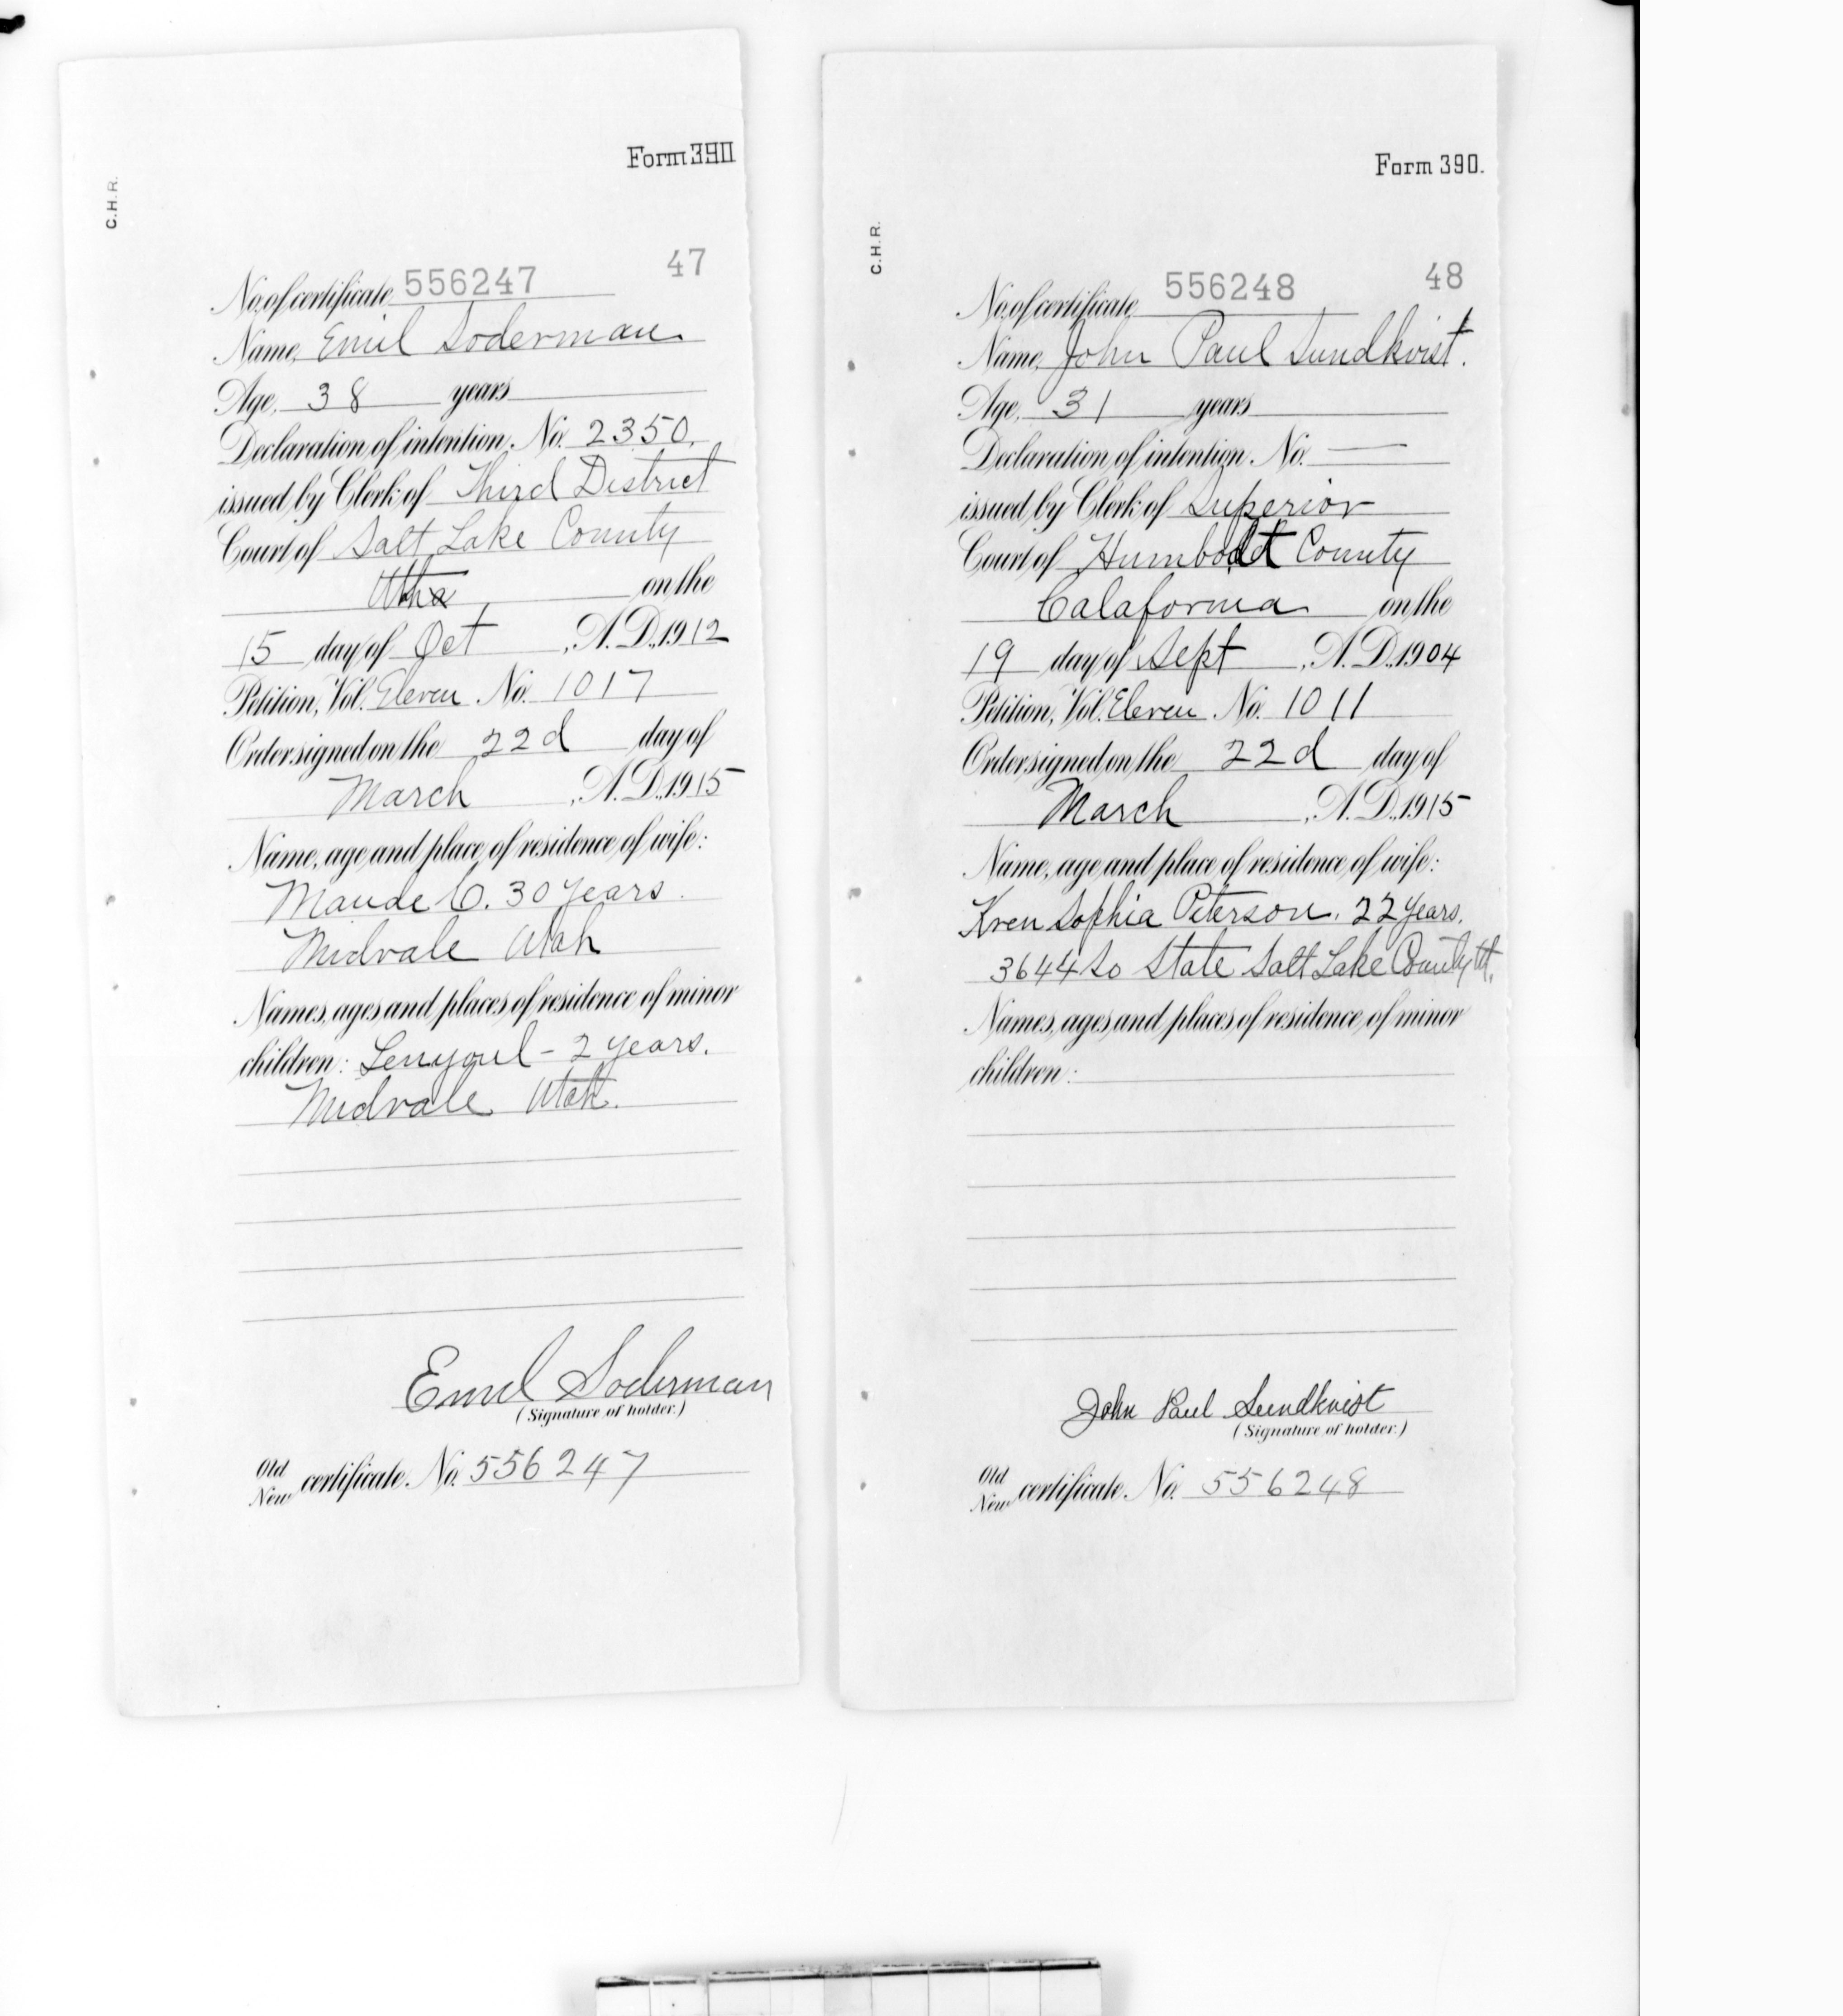 C.H.R.
Form 390
47
No. of certificate 556247
Name, Emil Soderman
Age, 38 years
Declaration of intention. No. 2350.
issued by Clerk of Third District
Court of Salt Lake County
on the
15 day of Oct, A.D. 1912
Petition, Vol. Eleven No. 1017
Order signed on the 22d day of
March, A.D. 1915
Name, age and place of residence of wife:
Maude C. 30 years.
Midvale Utah
Names, ages and places of residence of minor
children: - 2 years.
Midvale Utah.
Emil Soderman
(Signature of holder.)
Old
New certificate. No. 556247
C.H.R.
Form 390.
48
No. of certificate 556248
Name, John Paul Sundkvist.
Age, 31 years
Declaration of intention. No. —
issued by Clerk of Superior
Court of Humboldt County
Calafornia on the
19 day of Sept, A.D. 1904
Petition, Vol. Eleven No. 1011
Order signed on the 22d day of
March, A.D. 1915
Name, age and place of residence of wife:
Kren Sophia Peterson. 22 years.
3644 So State Salt Lake County Ut.
Names, ages and places of residence of minor
children:
John Paul Sundkvist
(Signature of holder.)
Old
New certificate. No. 556248